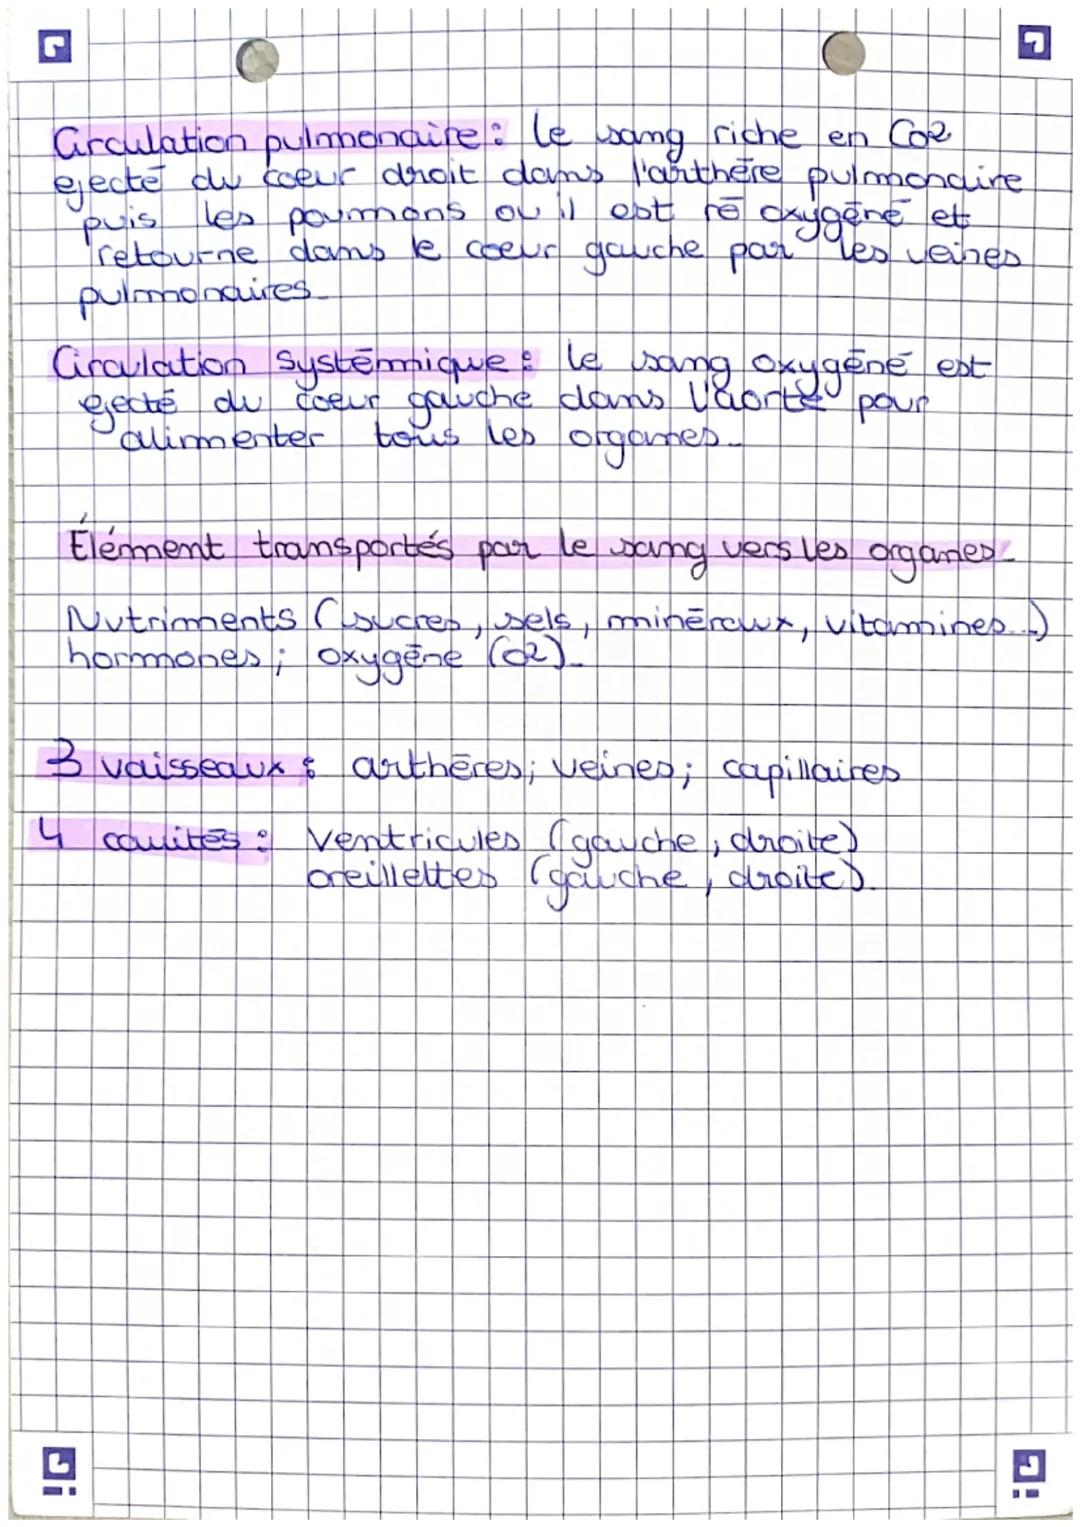 Circulation pulmonaire : le sang riche en Co2
ejecté du coeur droit dans l'arthère pulmonaire
puis les poumons ou il est ré oxygéné et
retourne dans le coeur gauche par les veines
pulmonaires.
Circulation systémique : le sang oxygéné est
ejecté du coeur gauche dans l'aorte pour
alimenter tous les organes.
Élément transportés par le sang vers les organes.
Nutriments (sucres, sels, minéraux, vitamines...)
hormones ; oxygène (O2).
3 vaisseaux : arthères ; veines ; capillaires
4 cavités : Ventricules (gauche, droite)
oreillettes (gauche, droite).